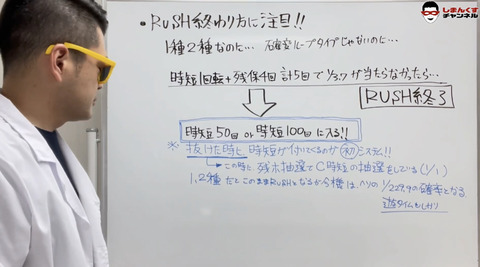 しまんくす
チャンネル
・RUSH終わり方に注目!!
1種2種なのに… 確変ループタイプじゃないのに…
時短1回転+残保4回 計5回で が当たらなかったら…
RUSH終了
時短50回 or 時短100回に入る!!
※ 抜けた時に時短が付いてくるのが初システム!!
この時に残保抽選でC時短の抽選をしている(1/1)
1,2種だとこのままRUSHとなるが今機は、ヘソの1/229.9の確率となる。
遊タイムもしかり